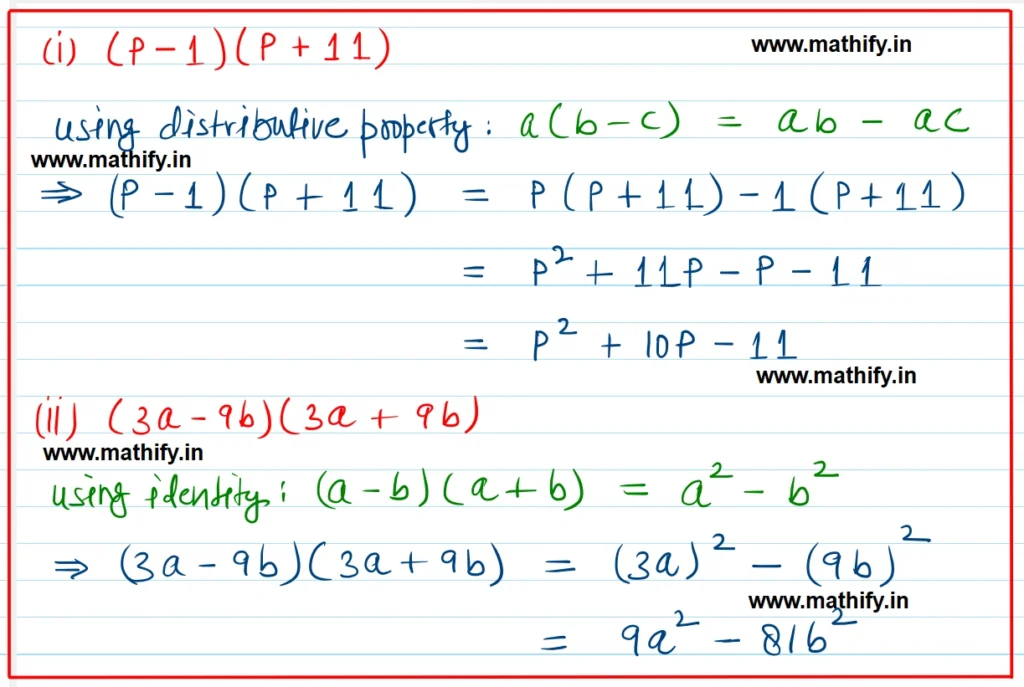 (i) (P-1)(P+11)
www.mathify.in
using distributive property: a(b-c) = ab - ac
www.mathify.in
⇒ (P-1)(P+11) = P(P+11)-1(P+11)
= P² + 11P - P - 11
= P² + 10P - 11
www.mathify.in
(ii) (3a-9b)(3a+9b)
www.mathify.in
using identity: (a-b)(a+b) = a² - b²
⇒ (3a-9b)(3a+9b) = (3a)² - (9b)²
www.mathify.in
= 9a² - 81b²